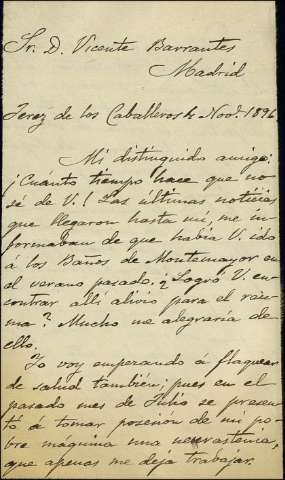 Sr. D. Vicente Barrantes
Madrid
Jerez de los Caballeros Nov. 1896
Mi distinguido amigo:
¡Cuánto tiempo hace que no
sé de V.! Las últimas noticias
que llegaron hasta mí, me in
formaban de que había V. ido
á los Baños de Montemayor en
el verano pasado. ¿Logró V. en
contrar allí alivio para el reu
ma? Mucho me alegraría de
ello.
Yo voy empezando á flaquear
de salud también; pues en el
pasado mes de Julio se presen
tó á tomar posesión de mi po
bre máquina una neurastenia,
que apenas me deja trabajar.